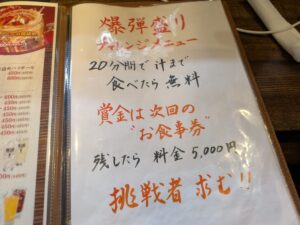 爆弾盛り
チャレンジメニュー
20分間で汁まで
食べたら無料
賞金は次回の
"お食事券"
残したら 料金5,000円
挑戦者 求む!!